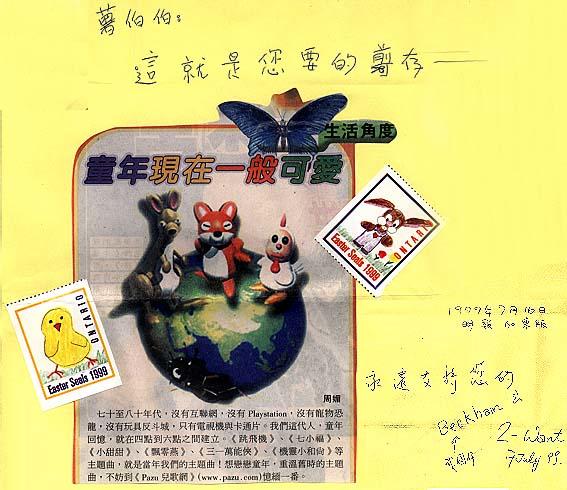 薯伯伯：
這就是您要的剪存——
生活角度
童年現在一般可愛
ONTARIO
Easter Seals 1999
ONTARIO
Easter Seals 1999
周媚
七十至八十年代，沒有互聯網，沒有Playstation，沒有寵物恐
龍，沒有玩具反斗城，只有電視機與卡通片。我們這代人，童年
回憶，就在四點到六點之間建立。《跳飛機》、《七小福》、
《小甜甜》、《飄零燕》、《三一萬能俠》、《機靈小和尚》等
主題曲，就是當年我們的主題曲！想戀戀童年，重溫舊時的主題
曲，不妨到《Pazu 兒歌網》(www.pazu.com)憶緬一番。
1999年7月16日
永遠支持您的
Beckham
7 July 99.